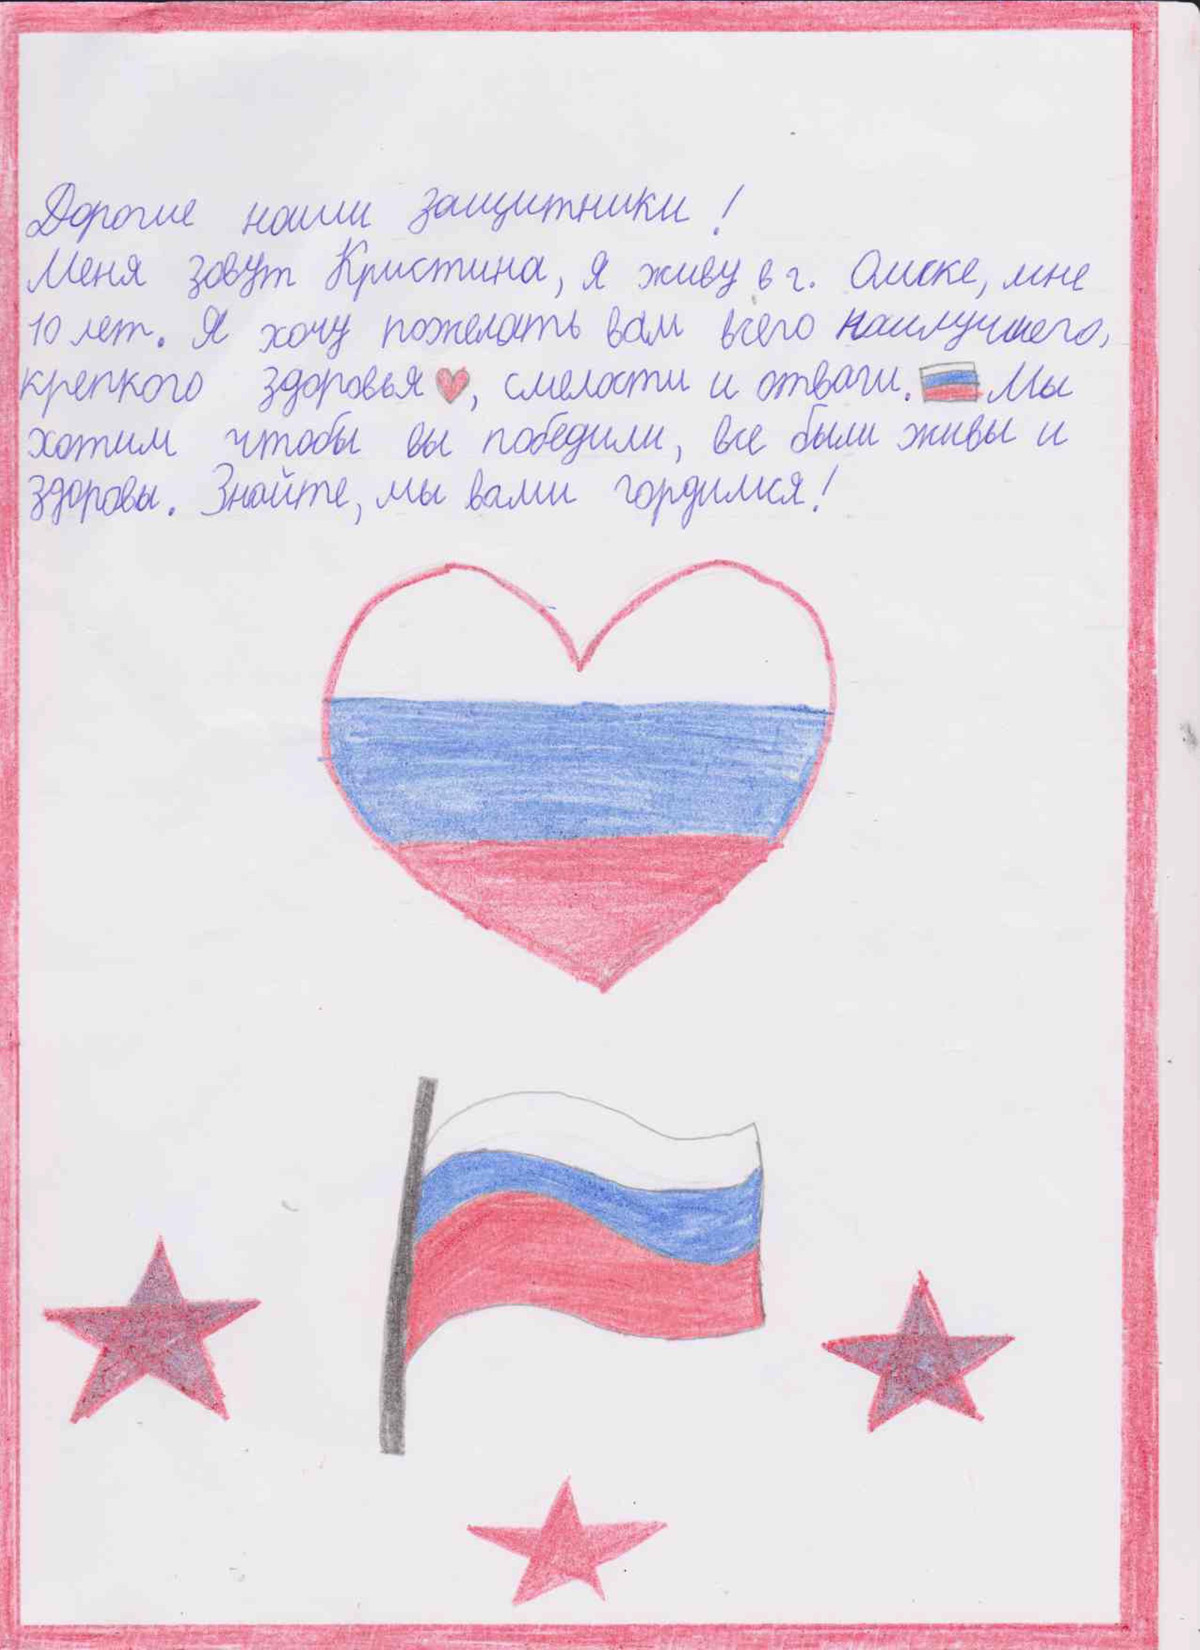 Дорогие наши защитники!
Меня зовут Кристина, я живу в г. Омске, мне
10 лет. Я хочу пожелать вам всего наилучшего,
крепкого здоровья, смелости и отваги. Мы
хотим чтобы вы победили, все были живы и
здоровы. Знайте, мы вами гордимся!